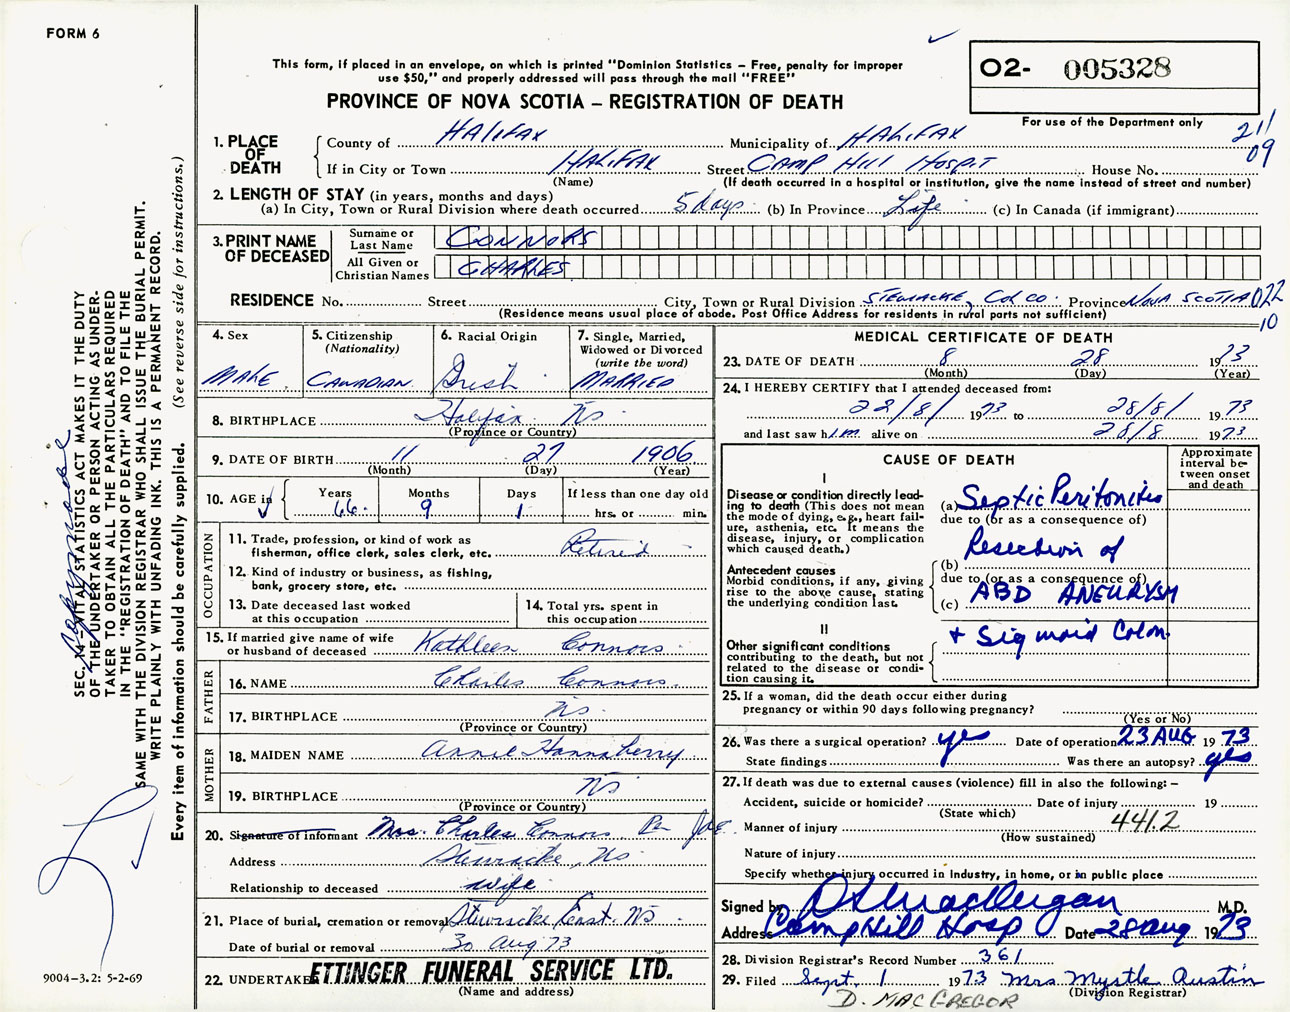 FORM 6
This form, if placed in an envelope, on which is printed "Dominion Statistics – Free, penalty for improper
use $50," and properly addressed will pass through the mail "FREE"
PROVINCE OF NOVA SCOTIA – REGISTRATION OF DEATH
O2- 005328
For use of the Department only
211
09
1. PLACE OF DEATH
County of HALIFAX Municipality of HALIFAX
If in City or Town HALIFAX Street CAMP HILL HOSPT House No.
(Name) (If death occurred in a hospital or institution, give the name instead of street and number)
2. LENGTH OF STAY (in years, months and days)
(a) In City, Town or Rural Division where death occurred 5 days (b) In Province Life (c) In Canada (if immigrant)
3. PRINT NAME OF DECEASED
Surname or Last Name CONNORS
All Given or Christian Names CHARLES
RESIDENCE No. Street City, Town or Rural Division STEWIACKE, COL CO. Province NOVA SCOTIA 022
(Residence means usual place of abode. Post Office Address for residents in rural parts not sufficient)
10
4. Sex MALE
5. Citizenship (Nationality) CANADIAN
6. Racial Origin Irish
7. Single, Married, Widowed or Divorced (write the word) MARRIED
8. BIRTHPLACE Halifax NS
(Province or Country)
9. DATE OF BIRTH 11 27 1906
(Month) (Day) (Year)
10. AGE in Years 66 Months 9 Days 1 If less than one day old hrs. or min.
OCCUPATION
11. Trade, profession, or kind of work as fisherman, office clerk, sales clerk, etc. Retired
12. Kind of industry or business, as fishing, bank, grocery store, etc.
13. Date deceased last worked at this occupation
14. Total yrs. spent in this occupation
15. If married give name of wife or husband of deceased Kathleen Connors
FATHER
16. NAME Charles Connors
17. BIRTHPLACE NS
(Province or Country)
MOTHER
18. MAIDEN NAME Annie Hannaberry
19. BIRTHPLACE NS
(Province or Country)
20. Signature of informant Mrs. Charles Connors Per
Address Stewiacke, NS
Relationship to deceased wife
21. Place of burial, cremation or removal Stewiacke East. NS
Date of burial or removal 30 Aug 73
22. UNDERTAKER ETTINGER FUNERAL SERVICE LTD.
(Name and address)
MEDICAL CERTIFICATE OF DEATH
23. DATE OF DEATH 8 28 1973
(Month) (Day) (Year)
24. I HEREBY CERTIFY that I attended deceased from:
22/8/ 1973 to 28/8/ 1973
and last saw him alive on 28/8 1973
CAUSE OF DEATH
Approximate interval between onset and death
I
Disease or condition directly leading to death (This does not mean the mode of dying, e.g., heart failure, asthenia, etc. It means the disease, injury, or complication which caused death.)
(a) Septic Peritonitis
due to (or as a consequence of)
Antecedent causes
Morbid conditions, if any, giving rise to the above cause, stating the underlying condition last.
(b) Resection of
due to (or as a consequence of)
(c) ABD ANEURYSM
II
Other significant conditions contributing to the death, but not related to the disease or condition causing it.
+ Sigmoid Colon.
25. If a woman, did the death occur either during pregnancy or within 90 days following pregnancy?
(Yes or No)
26. Was there a surgical operation? yes Date of operation 23 AUG 1973
State findings Was there an autopsy? yes
27. If death was due to external causes (violence) fill in also the following:–
Accident, suicide or homicide? Date of injury 19
(State which)
Manner of injury 441.2
(How sustained)
Nature of injury
Specify whether injury occurred in Industry, in home, or in public place
Signed by M.D.
Address Camp Hill Hosp Date 28 Aug 1973
28. Division Registrar's Record Number 361
29. Filed Sept. 1 1973 Mrs Myrtle Austin
(Division Registrar)
D. MACGREGOR
SEC. 14 – VITAL STATISTICS ACT MAKES IT THE DUTY
OF THE UNDERTAKER OR PERSON ACTING AS UNDER-
TAKER TO OBTAIN ALL THE PARTICULARS REQUIRED
IN THE "REGISTRATION OF DEATH" AND TO FILE THE
SAME WITH THE DIVISION REGISTRAR WHO SHALL ISSUE THE BURIAL PERMIT.
WRITE PLAINLY WITH UNFADING INK. THIS IS A PERMANENT RECORD.
Every item of information should be carefully supplied. (See reverse side for instructions.)
9004-3.2: 5-2-69